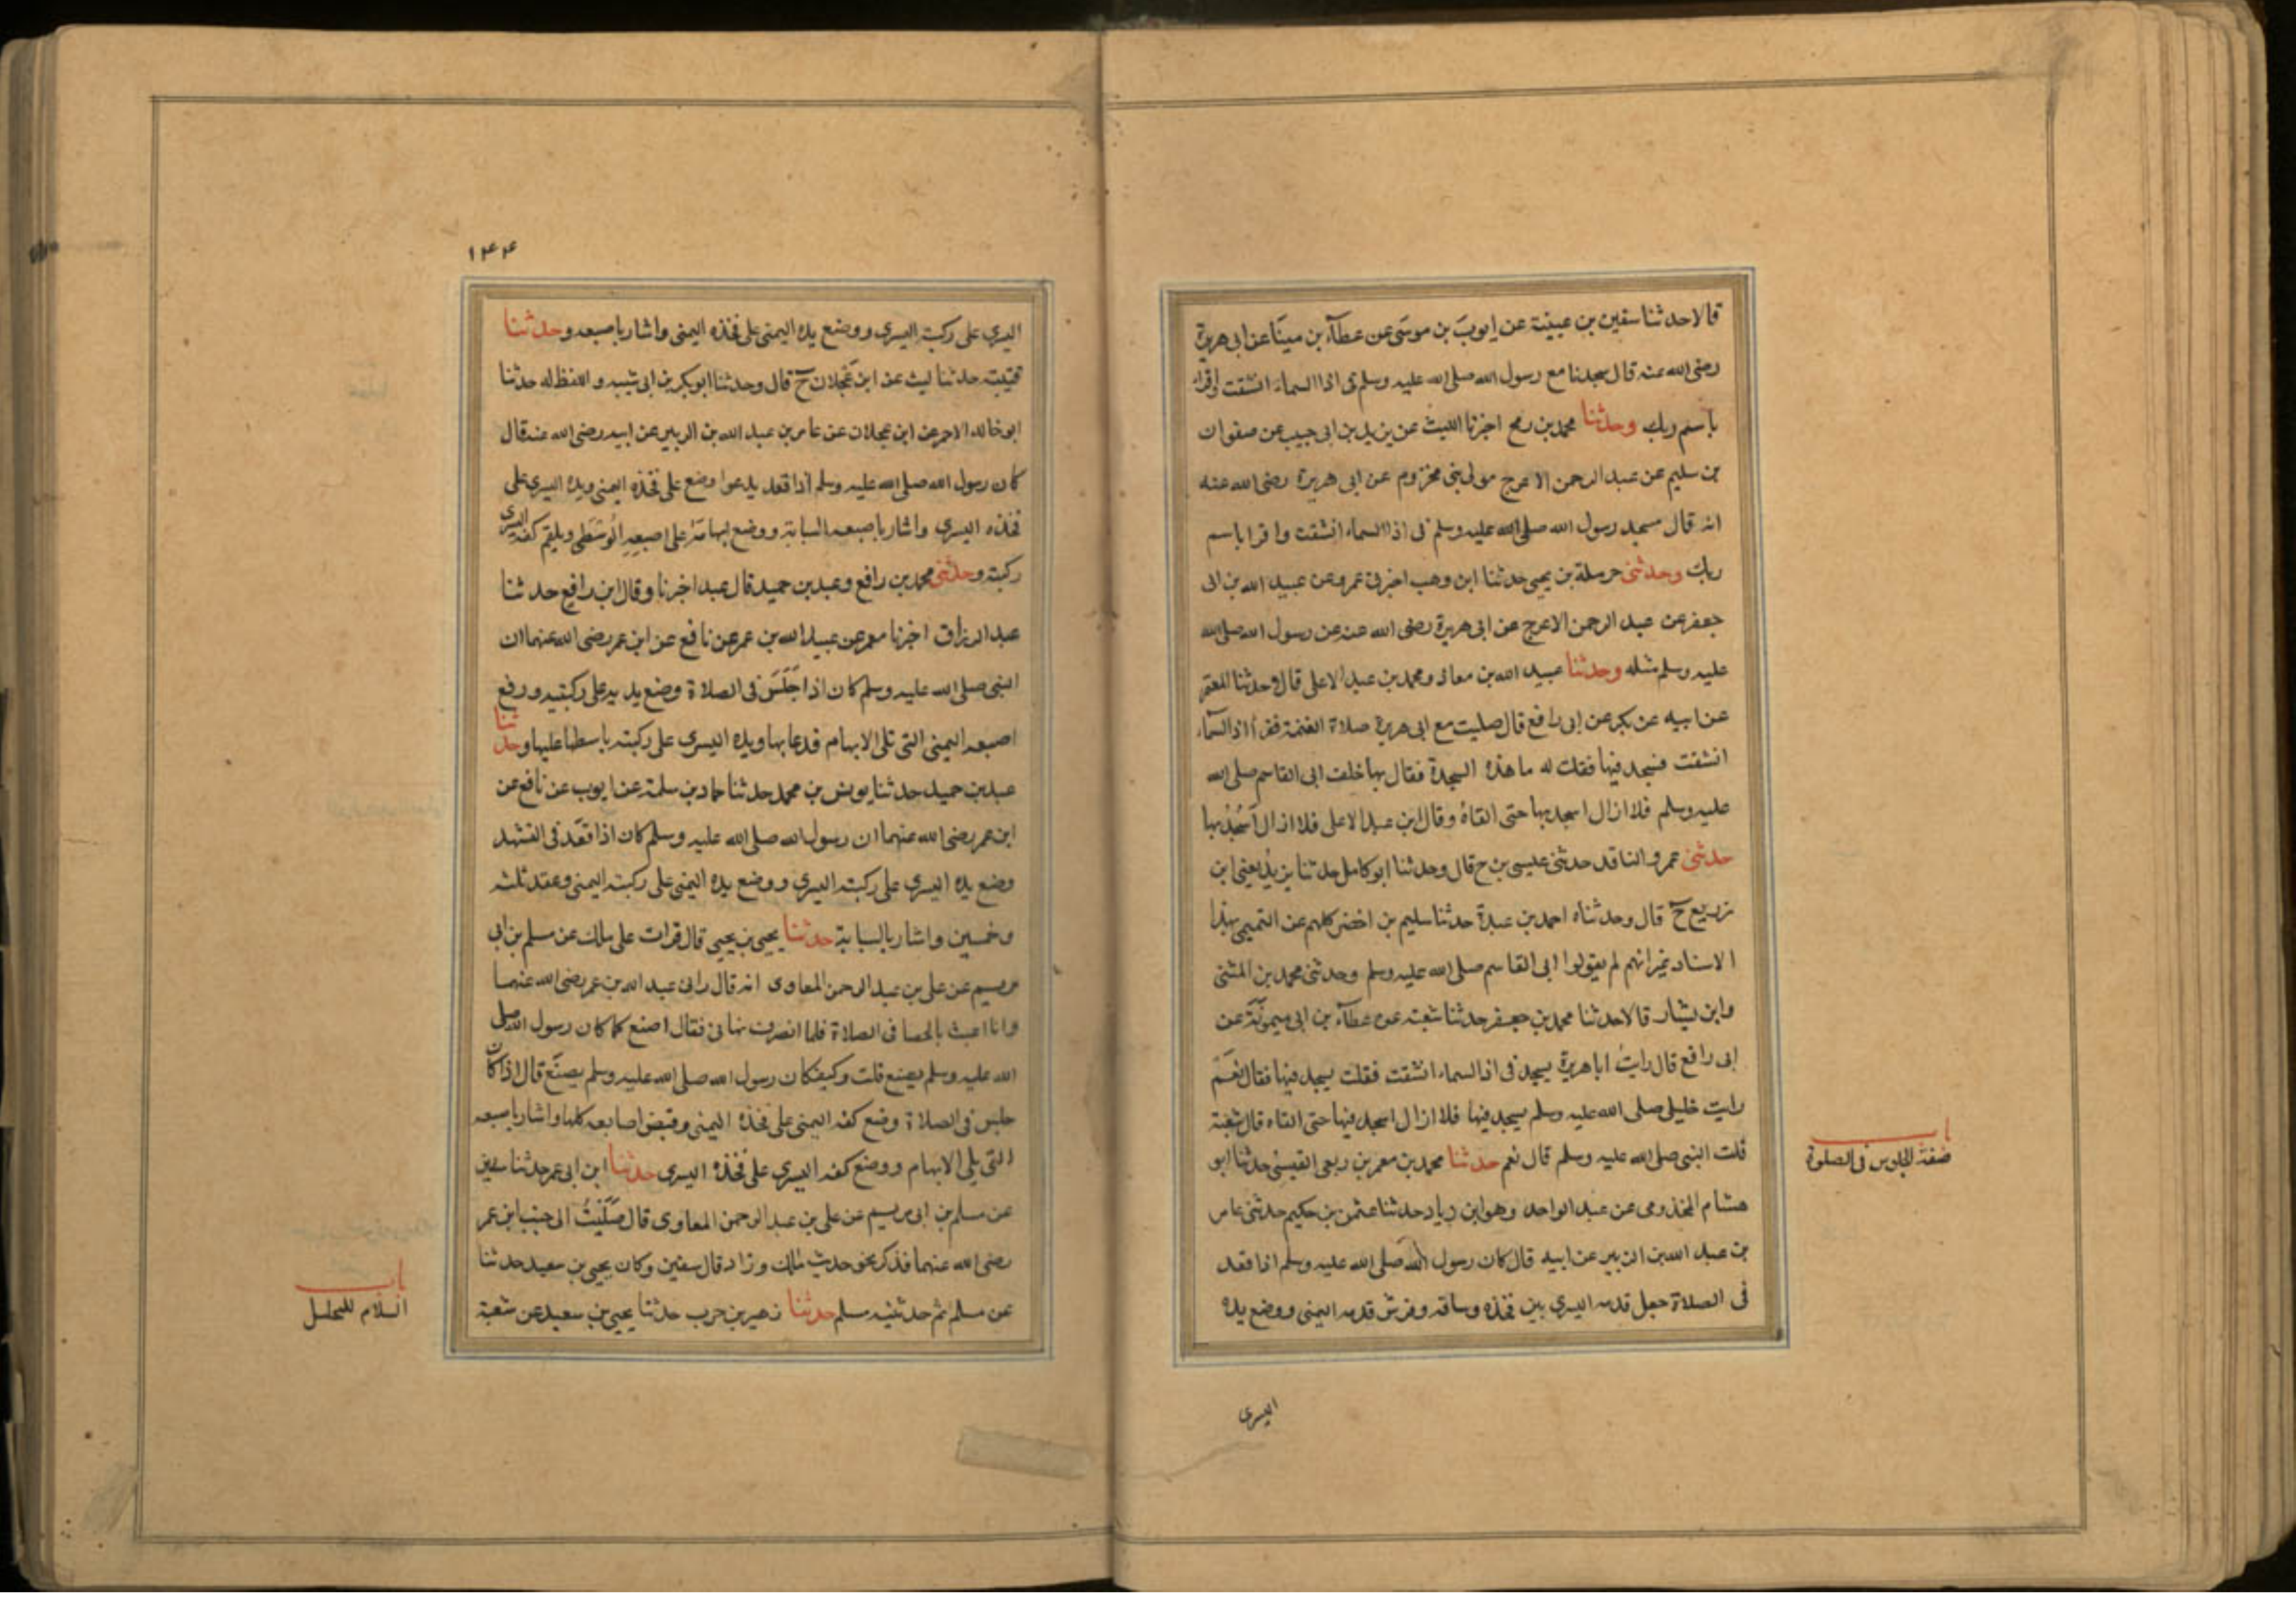 قالا حدثنا سفين بن عيينة عن ايوب بن موسى عن عطآء بن مينا عن ابى هريرة
رضى الله عنه قال سجدنا مع رسول الله صلى الله عليه وسلم فى اذا السماء انشقت واقرا
باسم ربك وحدثنا محمد بن رمح اخبرنا الليث عن يزيد بن ابى حبيب عن صفوان
بن سليم عن عبد الرحمن الاعرج مولى بنى مخزوم عن ابى هريرة رضى الله عنه
انه قال سجد رسول الله صلى الله عليه وسلم فى اذا السماء انشقت واقرا باسم
ربك وحدثنى حرملة بن يحيى حدثنا ابن وهب اخبرنى عمرو عن عبيد الله بن ابى
جعفر عن عبد الرحمن الاعرج عن ابى هريرة رضى الله عنه عن رسول الله صلى الله
عليه وسلم مثله وحدثنا عبيد الله بن معاذ ومحمد بن عبد الاعلى قالا وحدثنا المعتمر
عن ابيه عن بكر عن ابى رافع قال صليت مع ابى هريرة صلاة العتمة فقرأ اذا السماء
انشقت فسجد فيها فقلت له ما هذه السجدة فقال بها خلف ابى القاسم صلى الله
عليه وسلم فلا ازال اسجد بها حتى القاه وقال ابن عبد الاعلى فلا ازال اسجد بها
حدثنى عمرو الناقد حدثنى عيسى بن ح قال وحدثنا ابو كامل حدثنا يزيد يعنى ابن
زريع ح قال وحدثناه احمد بن عبدة حدثنا سليم بن اخضر كلهم عن التميمى بهذا
الاسناد غير انهم لم يقولوا ابى القاسم صلى الله عليه وسلم وحدثنى محمد بن المثنى
وابن بشار قالا حدثنا محمد بن جعفر حدثنا شعبة عن عطآء بن ابى ميمونة عن
ابى رافع قال رايت ابا هريرة يسجد فى اذا السماء انشقت فقلت يسجد فيها فقال نعم
رايت خليلى صلى الله عليه وسلم يسجد فيها فلا ازال اسجد فيها حتى القاه قال شعبة
قلت النبى صلى الله عليه وسلم قال نعم حدثنا محمد بن معمر بن ربعى القيسى حدثنا ابو
هشام المخذومى عن عبد الواحد وهو ابن زياد حدثنا عثمن بن حكيم حدثنى عامر
بن عبد الله بن الزبير عن ابيه قال كان رسول الله صلى الله عليه وسلم اذا قعد
فى الصلاة جعل قدمه اليسرى بين فخذه وساقه وفرش قدمه اليمنى ووضع يده
اليسرى
باب
صفة الجلوس فى الصلوة
١٤٤
اليسرى على ركبته اليسرى ووضع يده اليمنى على فخذه اليمنى واشار باصبعه وحدثنا
قتيبة حدثنا ليث عن ابن عجلان ح قال وحدثنا ابو بكر بن ابى شيبه واللفظ له حدثنا
ابو خالد الاحمر عن ابن عجلان عن عامر بن عبد الله بن الزبير عن ابيه رضى الله عنه قال
كان رسول الله صلى الله عليه وسلم اذا قعد يدعوا وضع على فخذه اليمنى ويده اليسرى على
فخذه اليسرى واشار باصبعه السبابة ووضع ابهامه على اصبعه الوسطى ويلقم كفه اليسرى
ركبته وحدثنى محمد بن رافع وعبد بن حميد قال عبد اخبرنا وقال ابن رافع حدثنا
عبد الرزاق اخبرنا معمر عن عبيد الله بن عمر عن نافع عن ابن عمر رضى الله عنهما ان
النبى صلى الله عليه وسلم كان اذا جلس فى الصلاة وضع يديه على ركبتيه ورفع
اصبعه اليمنى التى تلى الابهام فدعا بها ويده اليسرى على ركبته باسطها عليها وحدثنا
عبد بن حميد حدثنا يونس بن محمد حدثنا حماد بن سلمة عن ايوب عن نافع عن
ابن عمر رضى الله عنهما ان رسول الله صلى الله عليه وسلم كان اذا قعد فى التشهد
وضع يده اليسرى على ركبته اليسرى ووضع يده اليمنى على ركبته اليمنى وعقد ثلثه
وخمسين واشار بالسبابة حدثنا يحيى بن يحيى قال قرات على مالك عن مسلم بن ابى
مريم عن على بن عبد الرحمن المعاوى انه قال رانى عبد الله بن عمر رضى الله عنهما
وانا اعبث بالحصا فى الصلاة فلما انصرف نهانى فقال اصنع كما كان رسول الله صلى
الله عليه وسلم يصنع قلت وكيف كان رسول الله صلى الله عليه وسلم يصنع قال اذا كان
جلس فى الصلاة وضع كفه اليمنى على فخذه اليمنى وقبض اصابعه كلها واشار باصبعه
التى يلى الابهام ووضع كفه اليسرى على فخذه اليسرى حدثنا ابن ابى عمر حدثنا سفين
عن مسلم بن ابى مريم عن على بن عبد الرحمن المعاوى قال صليت الى جنب ابن عمر
رضى الله عنهما فذكر نحو حديث مالك وزاد قال سفين وكان يحيى بن سعيد حدثنا
عن مسلم ثم حدثنيه مسلم حدثنا زهير بن حرب حدثنا يحيى بن سعيد عن شعبة
باب
السلام للتحليل